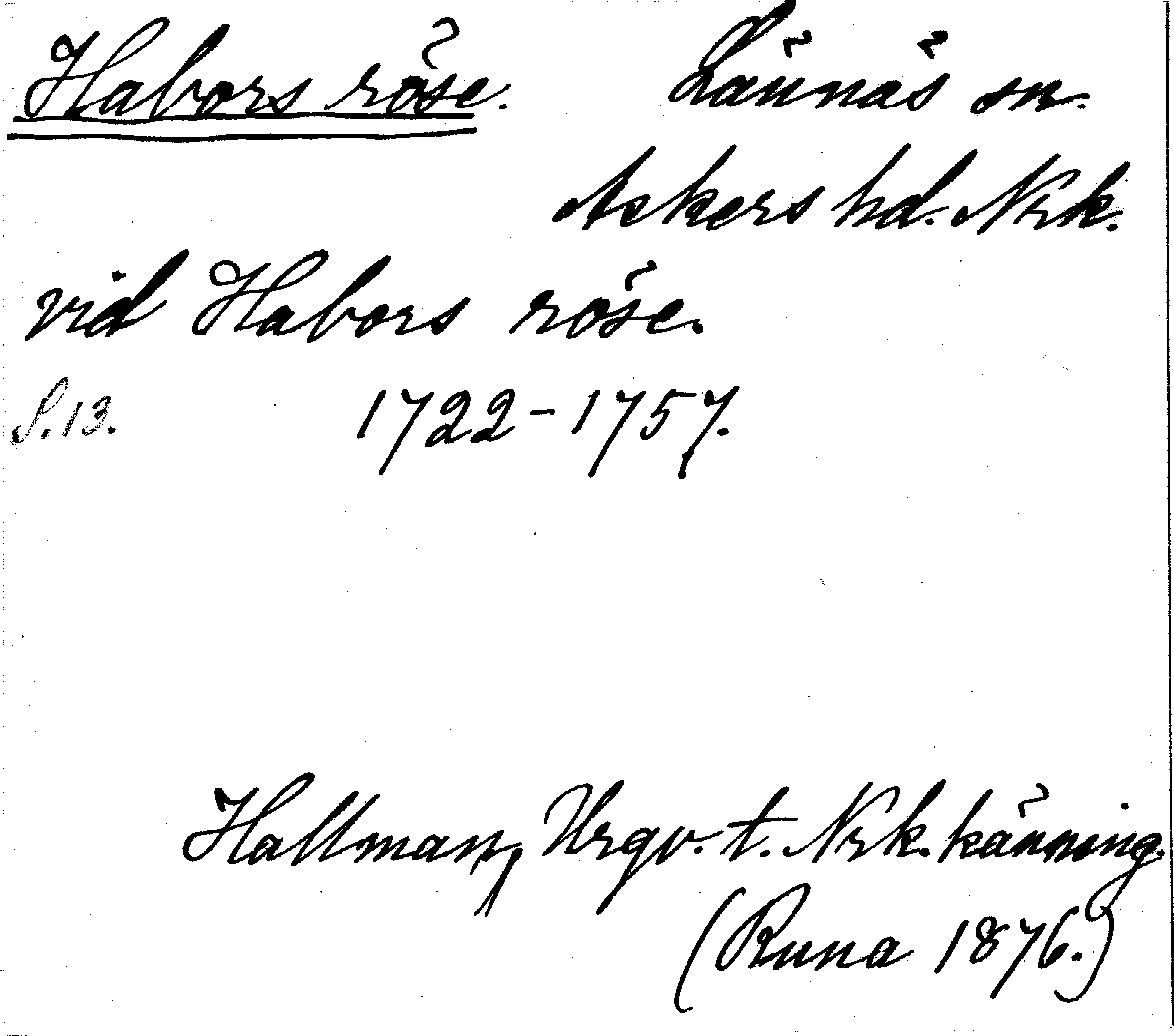 Habors röse. Lännäs sn.
Askers hd. Nrk.
vid Habors röse.
S. 13. 1722-1757.
Hallman, Urgv. t. Nrk. känning.
(Runa 1876.)